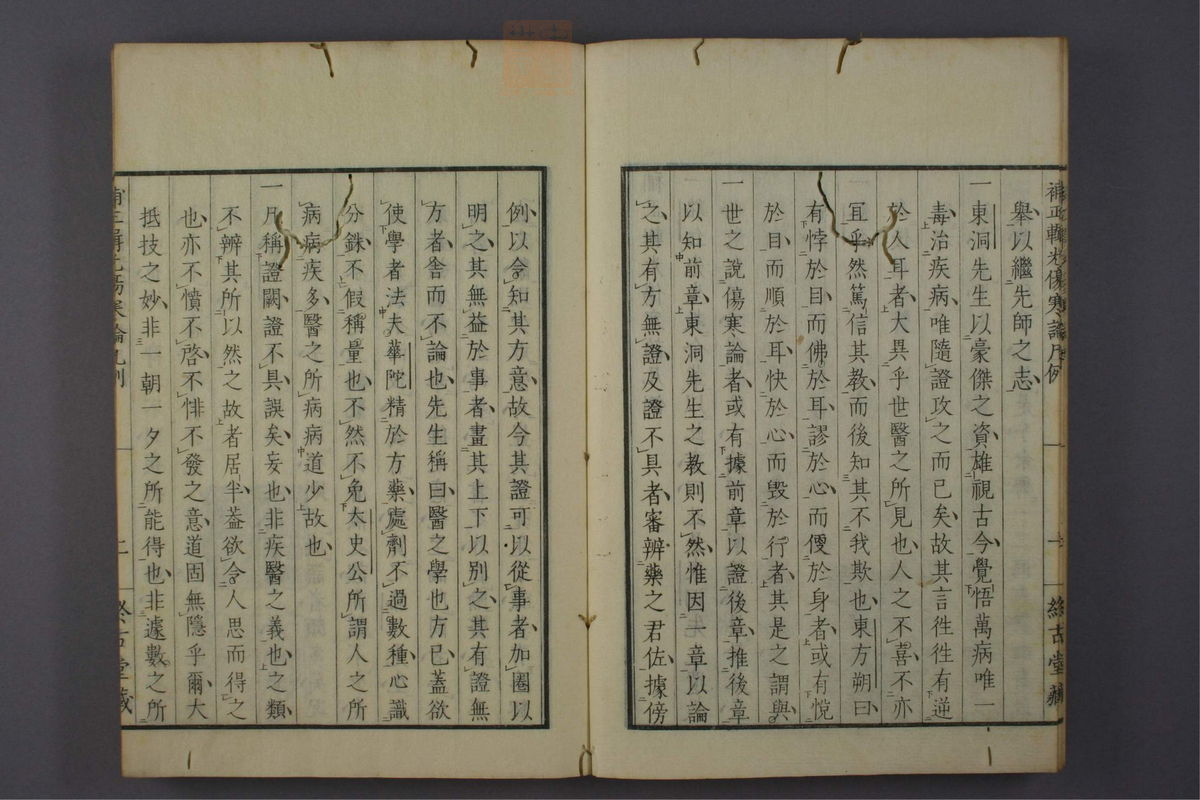 補正輯光傷寒論凡例
一
絲古堂藏
舉以繼先師之志
一東洞先生以豪傑之資雄視古今覺悟萬病唯一
毒治疾病唯隨證攻之而已矣故其言徃徃有逆
於人耳者大異乎世醫之所見也人之不喜不亦
冝乎然篤信其教而後知其不我欺也東方朔曰
有悖於目而佛於耳謬於心而便於身者或有悅
於目而順於耳快於心而毀於行者其是之謂與
一世之說傷寒論者或有據前章以證後章推後章
以知前章東洞先生之教則不然惟因先章以論
之其有方無證及證不具者審辨藥之君佐據傍
例以令知其方意故今其證可以從事者加圈以
明之其無益於事者畫其上下以別之其有證無
方者舍而不論也先生稱曰醫之學也方已蓋欲
使學者法夫華陀精於方藥處劑不過數種心識
分銖不假稱量也不然不免太史公所謂人之所
病病疾多醫之所病病道少故也
一凡稱證闕證不具誤矣妄也非疾醫之義也之類
不辨其所以然之故者居半蓋欲令人思而得之
也亦不憤不啓不悱不發之意道固無隱乎爾大
抵技之妙非一朝一夕之所能得也非遽數之所
二